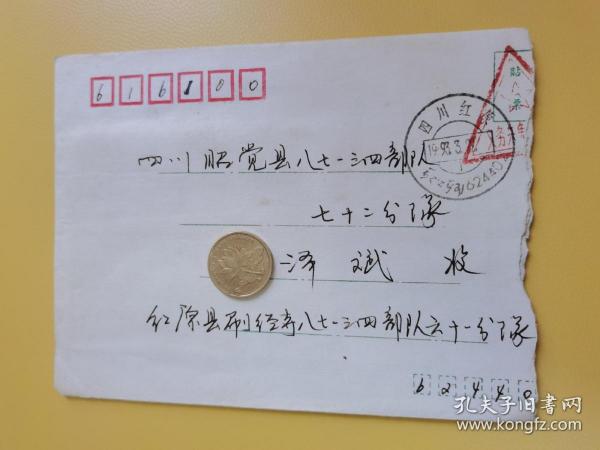 616100
贴
票
四川红
1993.3.
624401
四川昭觉县八七一三四部队
七十二分隊
泽斌 收
红原县刷经寺八七一三四部队六十一分隊
62440
孔夫子旧书网
www.kongfz.com